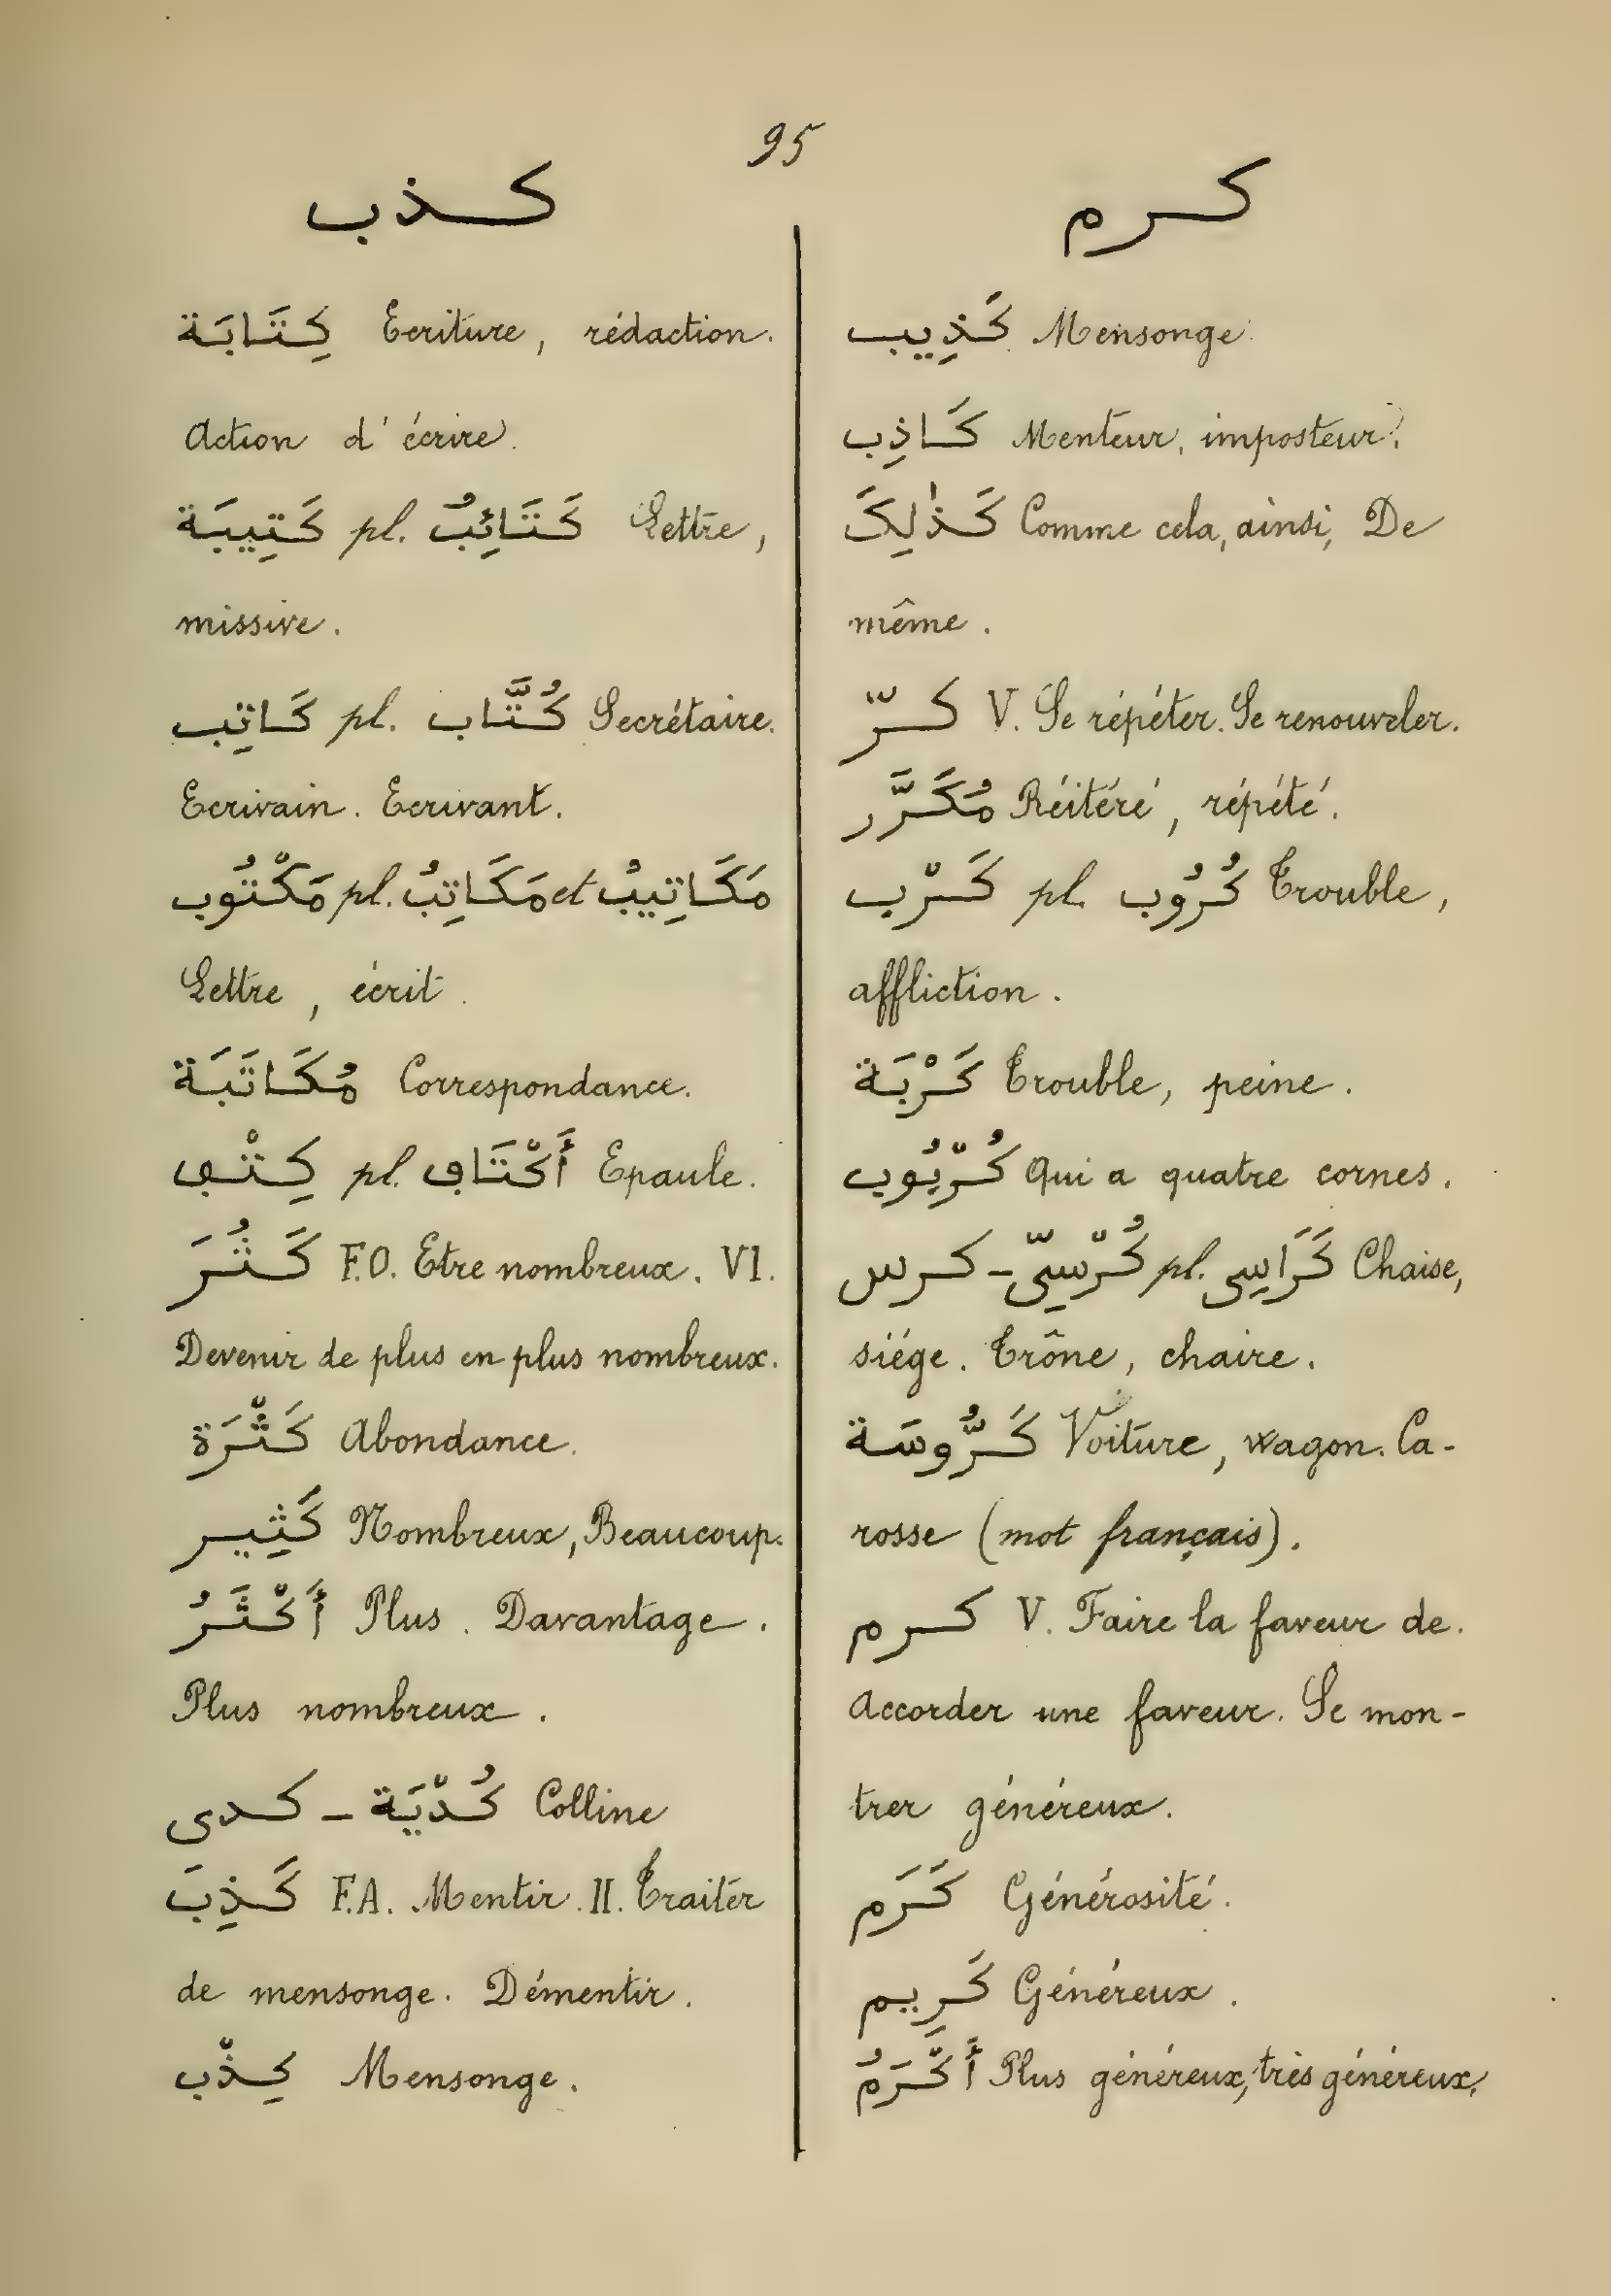 95
كذب
كِتَابَة Ecriture, rédaction.
Action d'écrire.
كَتِيبَة pl. كَتَائِبُ Lettre,
missive.
كَاتِب pl. كُتَّاب Secrétaire.
Ecrivain. Ecrivant.
مَكْتُوب pl. مَكَاتِبُ et مَكَاتِيبُ
Lettre, écrit.
مُكَاتَبَة Correspondance.
كِتْڢ pl. أَكْتَاڢ Epaule.
كَثُرَ F.O. Etre nombreux. VI.
Devenir de plus en plus nombreux.
كَثْرَة Abondance.
كَثِير Nombreux, Beaucoup.
أَكْثَرُ Plus. Davantage.
Plus nombreux.
كدى - كُدْيَة Colline
كَذِبَ F.A. Mentir. II. Traiter
de mensonge. Démentir.
كِذْب Mensonge.
كرم
كَذِيب Mensonge.
كَاذِب Menteur, imposteur.
كَذٰلِكَ Comme cela, ainsi, De
même.
كرّ V. Se répéter. Se renouveler.
مُكَرَّر Réitéré, répété.
كَرْب pl. كُرُوب Trouble,
affliction.
كَرْبَة Trouble, peine.
كُرْبُوب Qui a quatre cornes.
كرس - كُرْسِيّ pl. كَرَاسِى Chaise,
siége. Trône, chaire.
كَرُّوسَة Voiture, wagon. Ca-
rosse (mot français).
كرم V. Faire la faveur de.
Accorder une faveur. Se mon-
trer généreux.
كَرَم Générosité.
كَرِيم Généreux.
أَكْرَمُ Plus généreux, très généreux.